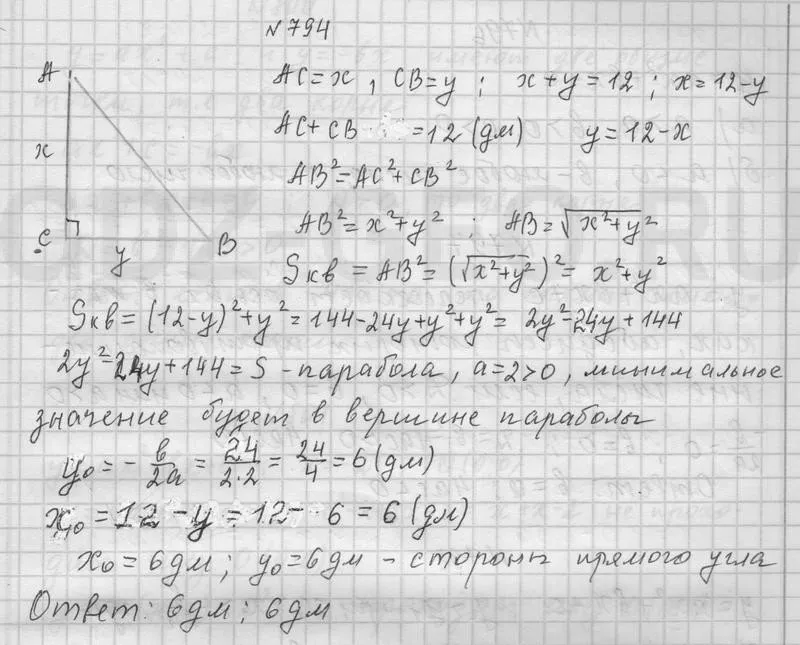 №794
AC=x, CB=y; x+y=12; x=12-y
AC+CB =12(дм) y=12-x
AB²=AC²+CB²
AB²=x²+y²; AB=√x²+y²
Sкв=AB²=(√x²+y²)²=x²+y²
Sкв=(12-y)²+y²=144-24y+y²+y²=2y²-24y+144
2y²-24y+144=S-парабола, a=2>0, минимальное
значение будет в вершине параболы
y₀=-в/2а=24/2·2=24/4=6(дм)
x₀=12-y=12-6=6(дм)
x₀=6дм; y₀=6дм-стороны прямого угла
Ответ: 6дм; 6дм
A
x
C
y
B